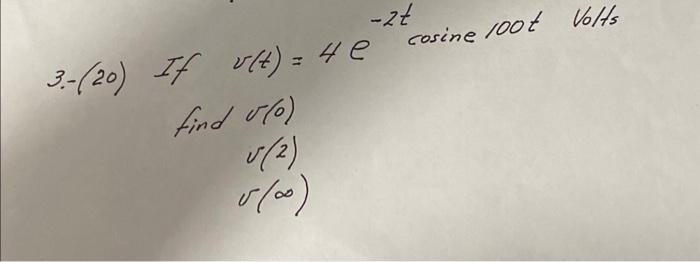 3.-(20) If v(t) = 4 e^-2t cosine 100t Volts
find v(0)
v(2)
v(∞)